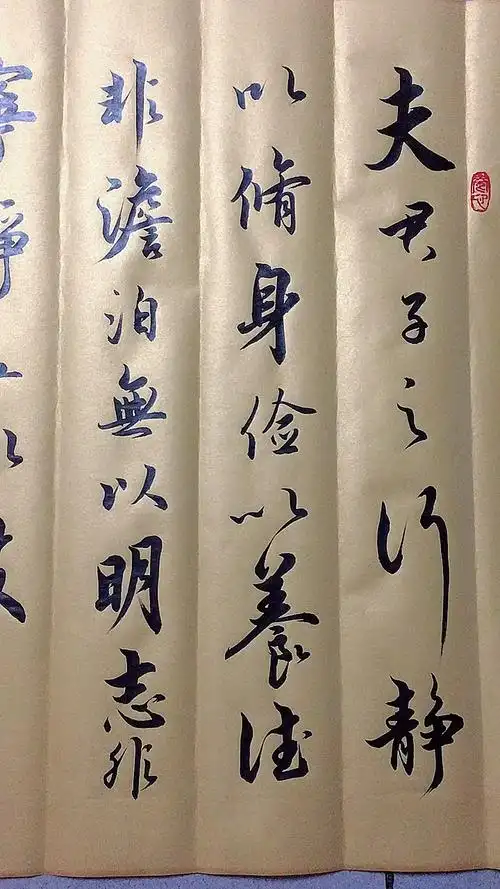 夫君子之行静
以脩身俭以養德
非澹泊無以明志非
寧静